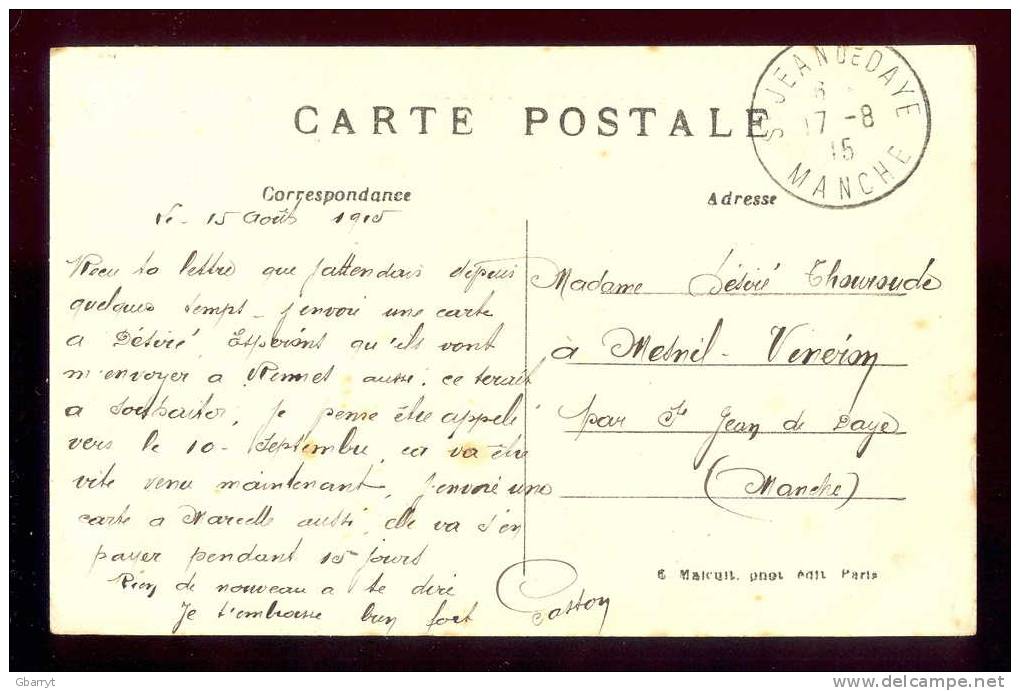 CARTE POSTALE
St JEAN DE DAYE
17 -8
15
MANCHE
Correspondance
Le 15 Août 1915
Recu ta lettre que j'attendais depuis
quelques temps - j'envoie une carte
a Désiré. Esperons qu'ils vont
m'envoyer a Rennes aussi. ce serait
a souhaiter, je pense être appelé
vers le 10 - Septembre, ca va être
vite venu maintenant, j'envoie une
carte a Marcelle aussi, elle va s'en
payer pendant 15 jours
Rien de nouveau a te dire
Je t'embrasse bien fort Gaston
Adresse
Madame Désiré Thouroude
à Mesnil - Vénéron
par St Jean de Daye
(Manche)
6 Malcuit. phot édit Paris
Gbarryt
delcampe.net